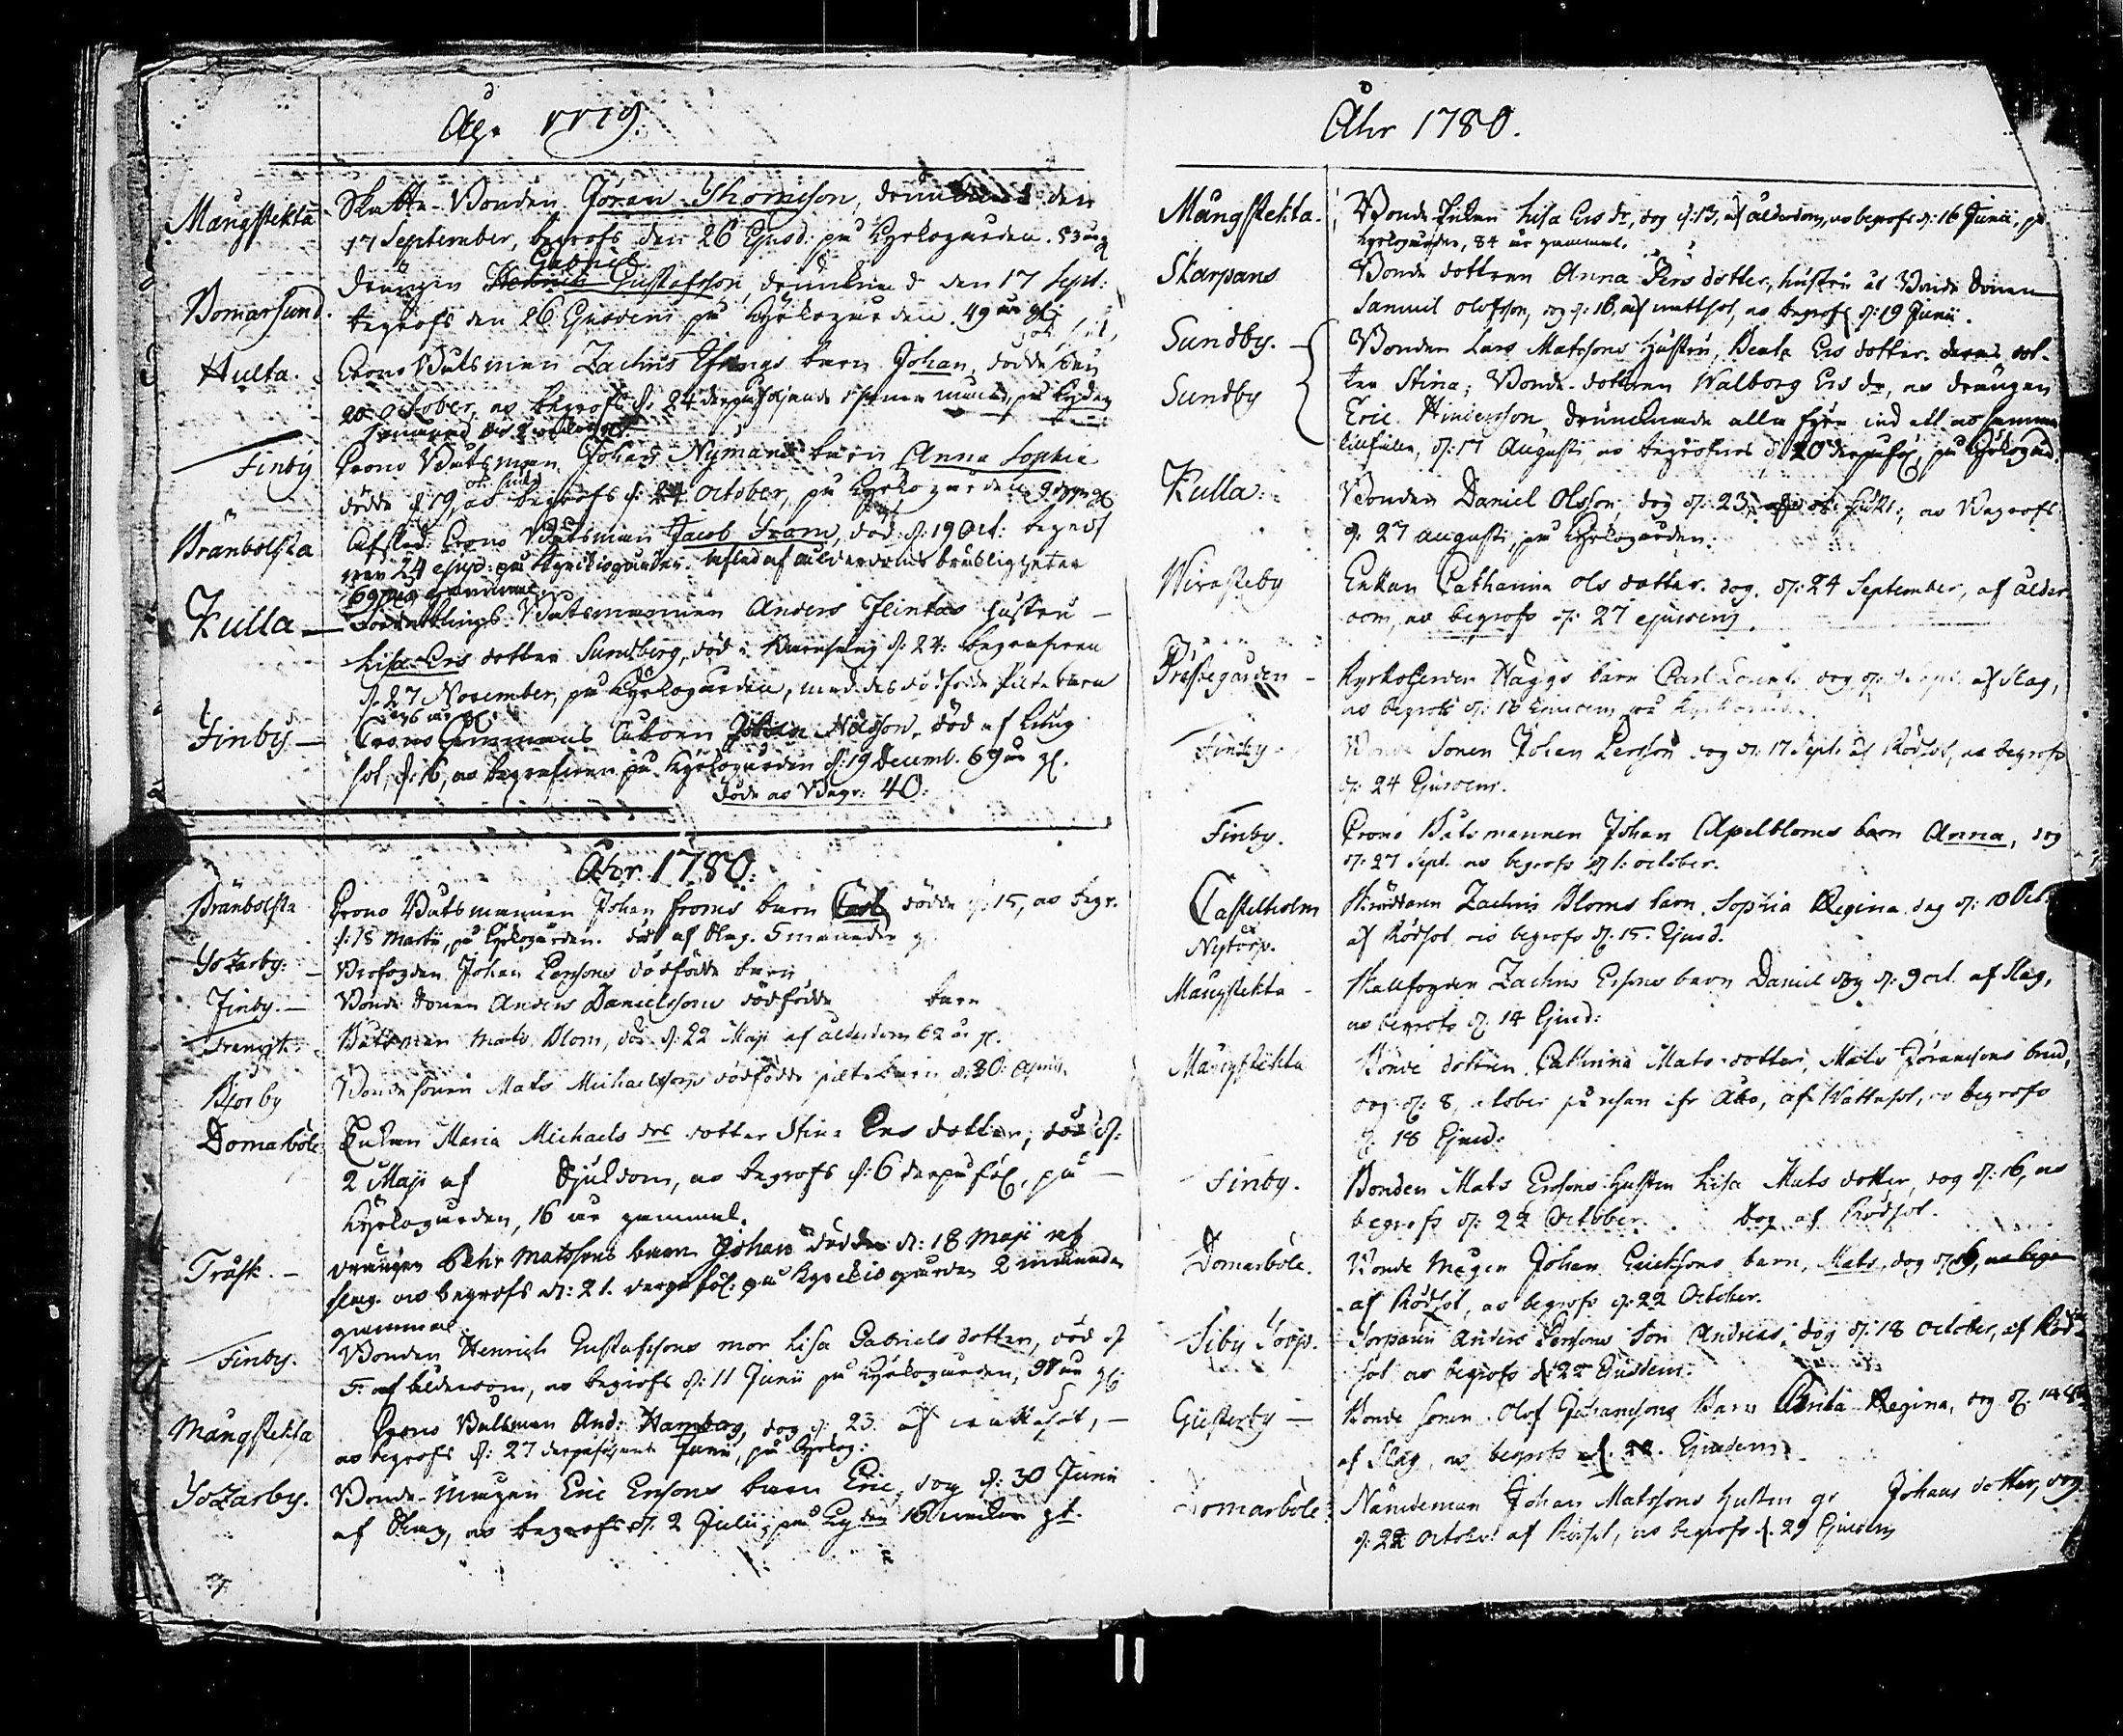 Åhr 1779.
Mångstekta Skatte-Bonden Göran Thomsson, drunknad den
17 September, begrofs den 26 Ejusd: på Kyrkogården. 53 år g
Gabriel
Bomarsund. Drängen Henrich Gustafsson, drunknad den 17 Sept:
begrofs den 26 Ejusdem på Kyrkogården. 49 år gl
Hulta. Crono Båtsman Zachris barn Johan, dödde den
20 October, ao begrofs d: 24 derpåföljande
Finby Crono Båtsman Johan Nymans barn Anna Sophia
dödde d 19, ao begrofs d: 24 October, på Kyrkogården
Bränbolsta Afsked: Crono Båtsman Jacob Fram, död d: 19 Oct: begrofs
den 24 ejusd: på Kyrckiogården. afled af ålderdoms bräckligheter
69 åhr gammal
Kulla Fördubblings Båtsmannen Anders Flinkas hustru
Lisa Ers dotter Sundberg, död i Barnsäng d: 24: begrafven
d. 27 November, på Kyrkogården, med des dödfödde Pilte barn
36 år gl.
Finby Crono Johan Nilsson, död af Lung
sot, d: 16, ao begrafven på Kyrkogården d: 19 Decemb. 69 år gl.
döde ao Begr: 40.
Åhr 1780.
Bränbolsta Crono Båtsmannen Johan Froms barn Carl dödde d: 15, ao begr.
d: 18 Martii, på Kyrkogården. död af Slag. 5 månader g.
Johan Perssons dödfödde barn
Finby. Bonde Sonen Anders Danielssons dödfödde barn
Båtsman Mats Blom, död d: 22 Maji af ålderdom 62 år gl.
Bjorby Bonde sonen Mats Michaelssons dödfödde pilte barn d: 30: Aprilis
Domarböle Enkan Maria Michaels drs dotter Stina Ers dotter, död d:
2 Maji af Sjukdom, ao begrofs d: 6 derpå föl, på
Kyrkogården, 16 år gammal.
Träsk. Drängen Pehr Matssons barn Johan dödde d: 18 Maji af
slag. ao begrofs d: 21. derpå föl: på Kyrckiogården 2 månader
gammal.
Finby. Bonden Henrich Gustafssons mor Lisa Gabriels dotter, död d
5: af ålderdom, ao begrofs d: 11 Junii på Kyrkogården, år gl
Mångstekta Crono Båtsman And: Hamberg, dog d: 23 af
ao begrofs d: 27 derpåföljande Junii, på Kyrkog:
Bonde-Mågen Eric Ersons barn Eric, dog d: 30 Junii
af Slag, ao begrofs d: 2 Julii, på Kyrkog 16 veckor gl.
Åhr 1780.
Mångstekta. Bonde Enkan Lisa Ers dr, dog d: 13, af ålderdom, ao begrofs d: 16 Junii, på
Kyrkogården, 84 år gammal.
Skarpans Bonde dottren Anna Pers dotter, hustru åt Bonde Sonen
Samuel Olofsson, dog d: 16, af ao begrofs d: 19 Junii.
Sundby. Bonden Lars Matssons Hustru, Beata Ers dotter. deras dot-
Sundby ter Stina; Bonde-dottren Walborg Ers dr, ao drängen
Eric Hinderson, drunknade alla fyra vid ett ao samma
tillfälle, d: 17 Augusti, ao begrofves d 20 derpåföl, på Kyrkogård.
Kulla. Bonden Daniel Olsson, dog d: 23, ao Begrofs
d. 27 augusti, på Kyrkogården.
Wirasteby Enkan Catharina Ols dotter. dog. d: 24 September, af ålder
dom, ao begrofs d: 27 ejusdem
Prästegården Häggs barn Carl af Slag,
ao begrofs d: 10 Ejusdem på
Finby. Bonde Sonen Johan Persson dog d: 17 Sept: af Rödsot, ao begrofs
d: 24 Ejusdem.
Finby. Crono Båtsmannen Johan Apelbloms barn Anna, dog
d: 27 Sept. ao begrofs d 1: october.
Castelholm Skräddaren Zachris Bloms barn, Sophia Regina dog d: 10 Oct.
Nytorp. af Rödsot ao begrofs d. 15. Ejusd.
Mångstekta Skallfogden Zachris Ersons barn Daniel dog d: 9 oct. af Slag,
ao begrofs d: 14 Ejusd:
Mångstekta Bonde dottren Cathrina Mats-dotter, Mats Jöranssons brud,
dog d: 8, october på resan ifr Åbo, af Wattusot, ao begrofs
d. 18 Ejusd:
Finby. Bonden Mats Ersons Hustru Lisa Mats dotter, dog d: 16, ao
begrofs d: 22 October. Dog af Rödsot.
Domarböle. Bonde Mågen Johan Erickssons barn, Mats, dog d: ao begr
af Rödsot, ao begrofs d: 22 October.
Siby Torp. Torparen Anders Perssons Son Andreas, dog d: 18 october, af Röd
sot ao begrofs d: 22 Ejusdem.
Gästerby Bonde sonen Olof Johanssons Barn Brita Regina, dog d: 14
af Slag, ao begrofs d. 22. Ejusdem.
Domarböle Nämdeman Johan Matssons Hustru Johans dotter, dog
d: 22 october af Rödsot, ao begrofs d. 29 Ejusdem